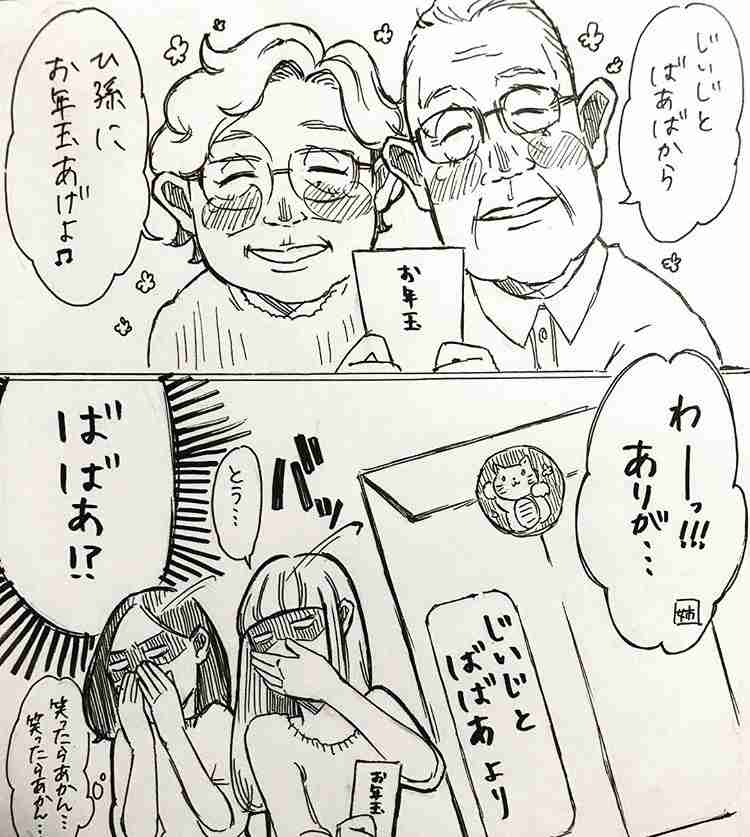 じぃじと
ばあばから
ひ孫に
お年玉あげよ♫
お年玉
わーっ!!!
ありが…
姉
じぃじと
ばばあより
バッ
とう…
ばばあ!?
お年玉
笑ったらあかん…
笑ったらあかん…